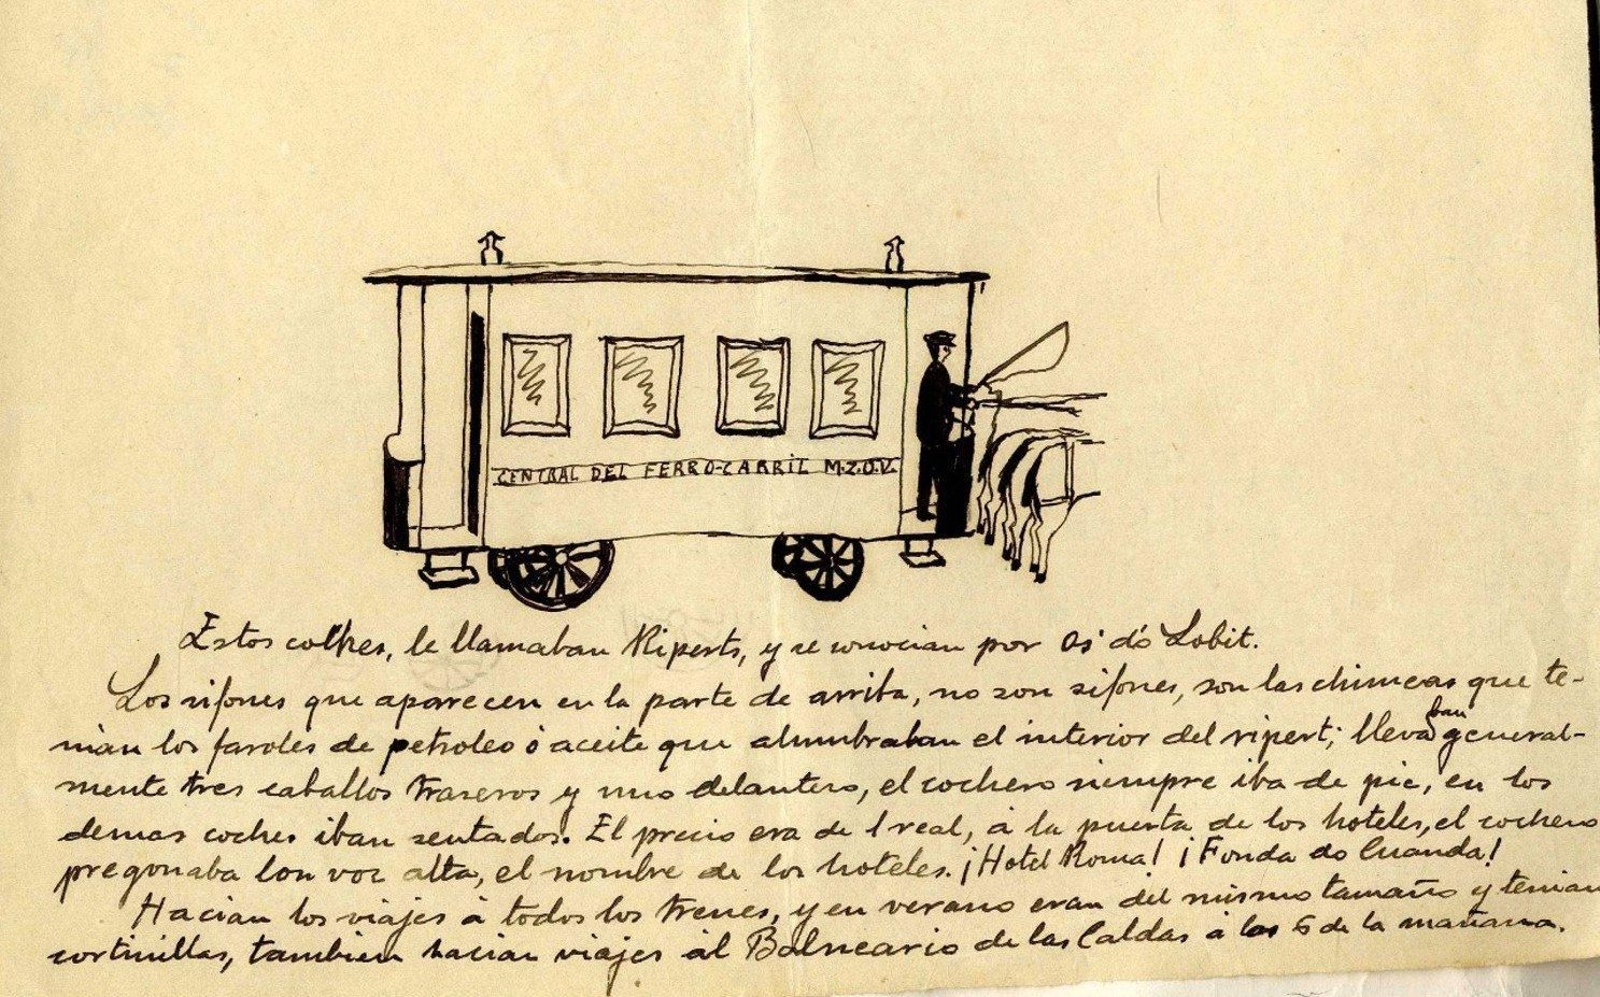 CENTRAL DEL FERRO-CARRIL M.Z.O.V.
Estos coches, le llamaban Riperts, y se conocian por os dó Lobit.
Los sifones que aparecen en la parte de arriba, no son sifones, son las chimeas que te-
nian los faroles de petroleo ó aceite que alumbraban el interior del ripert; llevaban general-
mente tres caballos traseros y uno delantero, el cochero siempre iba de pie, en los
demas coches iban sentados. El precio era de 1 real, á la puerta de los hoteles, el cochero
pregonaba con voz alta, el nombre de los hoteles. ¡Hotel Roma! ¡Fonda do Cuanda!
Hacian los viajes á todos los trenes, y en verano eran del mismo tamaño y tenian
cortinillas, tambien hacian viajes al Balneario de las Caldas á las 6 de la mañana.